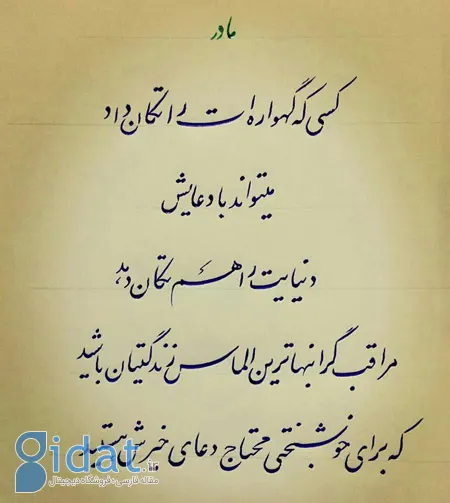 مادر
کسی که گهواره ات را تکان داد
میتواند با دعایش
دنیایت را هم تکان دهد
مراقب گرانبهاترین الماس زندگیتان باشید
که برای خوشبختی محتاج دعای خیرش هستید
gidat.ir
مقاله فارسی • فروشگاه دیجیتال